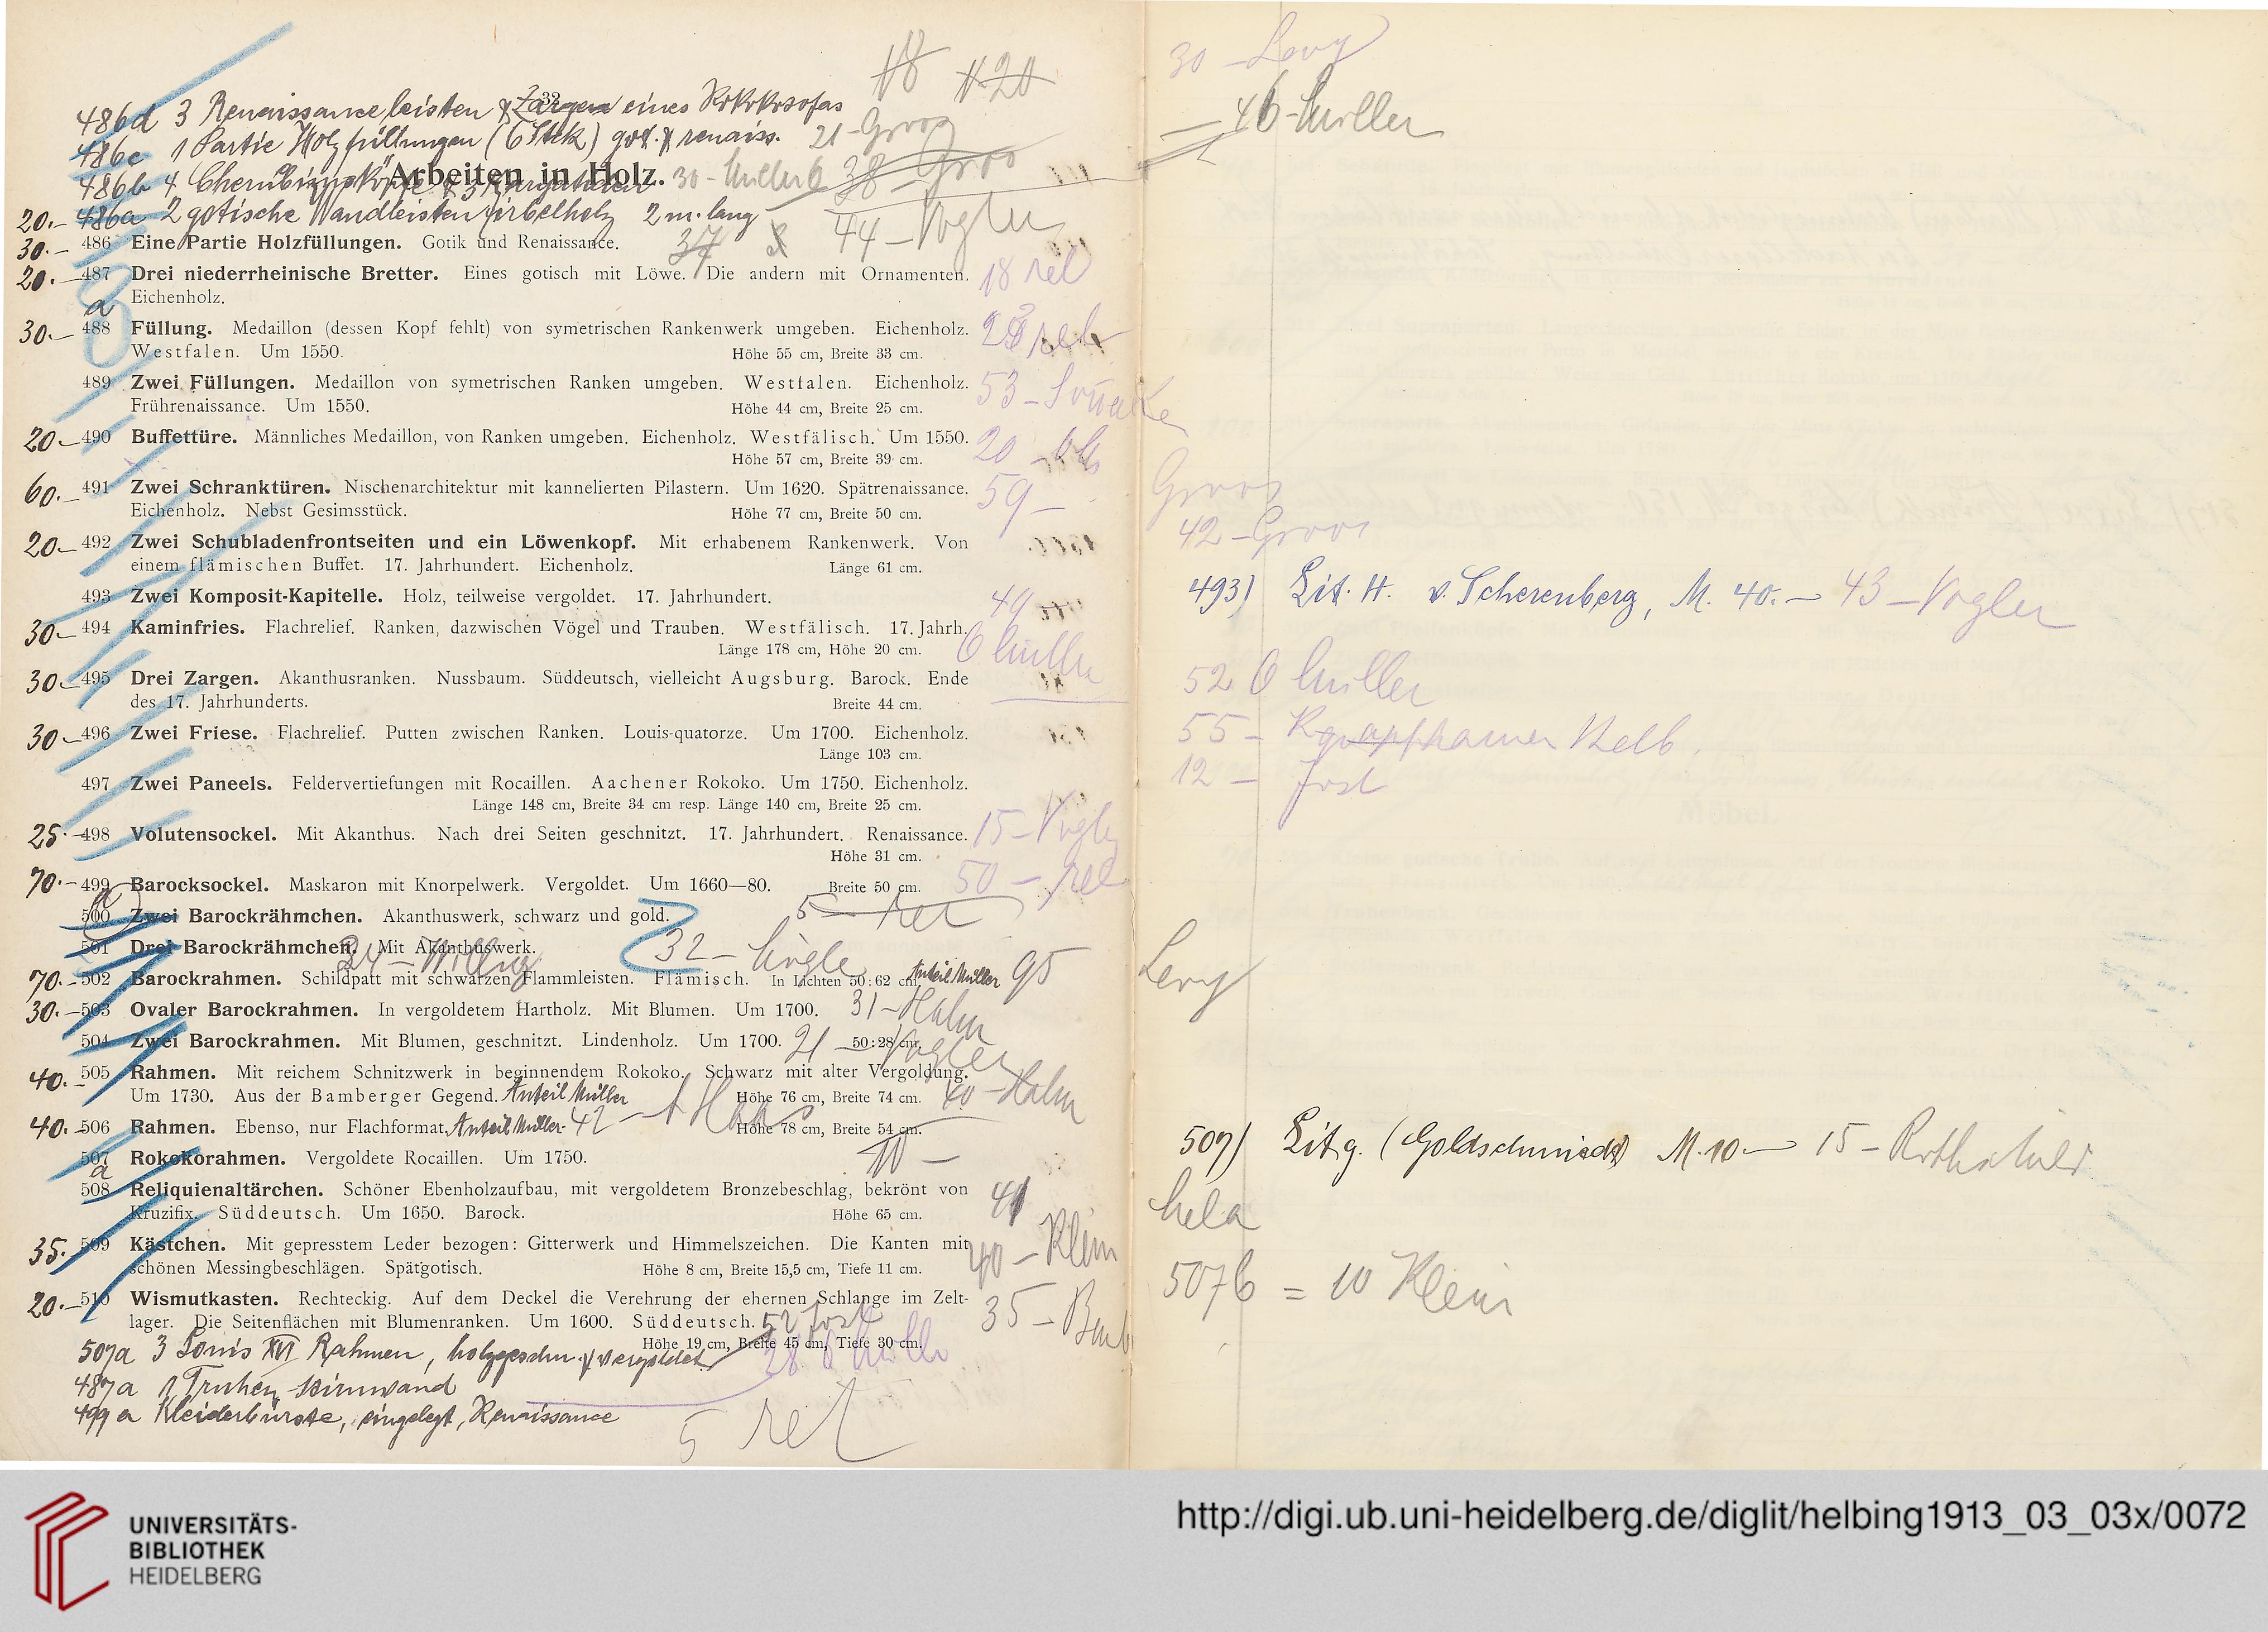 18 20
486d 3 Renaissanceleisten & Zargen eines Rokokosofas
32
486c 1 Partie Holzfüllungen (6 Stck) got. & renaiss. 21 - Groos
Arbeiten in Holz.
486b 4 Cherubimsköpfe & 3 30 - Müller 38 - Groo
20.- 486a 2 gotische Wandleisten Zirbelholz 2 m. lang 44 - Vogler
30.- 486 Eine Partie Holzfüllungen. Gotik und Renaissance. 37
20.- 487 Drei niederrheinische Bretter. Eines gotisch mit Löwe. Die andern mit Ornamenten. 18 ret
a Eichenholz.
30.- 488 Füllung. Medaillon (dessen Kopf fehlt) von symetrischen Rankenwerk umgeben. Eichenholz. ret
Westfalen. Um 1550. Höhe 55 cm, Breite 33 cm.
489 Zwei Füllungen. Medaillon von symetrischen Ranken umgeben. Westfalen. Eichenholz. 53 -
Frührenaissance. Um 1550. Höhe 44 cm, Breite 25 cm.
20.- 490 Buffettüre. Männliches Medaillon, von Ranken umgeben. Eichenholz. Westfälisch. Um 1550. 20 -
Höhe 57 cm, Breite 39 cm.
60.- 491 Zwei Schranktüren. Nischenarchitektur mit kannelierten Pilastern. Um 1620. Spätrenaissance. 59 -
Eichenholz. Nebst Gesimsstück. Höhe 77 cm, Breite 50 cm.
20.- 492 Zwei Schubladenfrontseiten und ein Löwenkopf. Mit erhabenem Rankenwerk. Von
einem flämischen Buffet. 17. Jahrhundert. Eichenholz. Länge 61 cm.
493 Zwei Komposit-Kapitelle. Holz, teilweise vergoldet. 17. Jahrhundert. 49
30.- 494 Kaminfries. Flachrelief. Ranken, dazwischen Vögel und Trauben. Westfälisch. 17. Jahrh. O Müller
Länge 178 cm, Höhe 20 cm.
30.- 495 Drei Zargen. Akanthusranken. Nussbaum. Süddeutsch, vielleicht Augsburg. Barock. Ende
des 17. Jahrhunderts. Breite 44 cm.
30.- 496 Zwei Friese. Flachrelief. Putten zwischen Ranken. Louis-quatorze. Um 1700. Eichenholz.
Länge 103 cm.
497 Zwei Paneels. Feldervertiefungen mit Rocaillen. Aachener Rokoko. Um 1750. Eichenholz.
Länge 148 cm, Breite 34 cm resp. Länge 140 cm, Breite 25 cm.
25.- 498 Volutensockel. Mit Akanthus. Nach drei Seiten geschnitzt. 17. Jahrhundert. Renaissance. 15 - Vogler
Höhe 31 cm.
70.- 499 Barocksockel. Maskaron mit Knorpelwerk. Vergoldet. Um 1660—80. Breite 50 cm. 50 - ret
a 500 Zwei Barockrähmchen. Akanthuswerk, schwarz und gold. 5 - ret
501 Drei Barockrähmchen. Mit Akanthuswerk. 32 -
70.- 502 Barockrahmen. Schildpatt mit schwarzen Flammleisten. Flämisch. In Lichten 50:62 cm. Anteil Müller 95
30.- 503 Ovaler Barockrahmen. In vergoldetem Hartholz. Mit Blumen. Um 1700. 31 - Halm
504 Zwei Barockrahmen. Mit Blumen, geschnitzt. Lindenholz. Um 1700. 50:28 cm. 21 - Vogler
40.- 505 Rahmen. Mit reichem Schnitzwerk in beginnendem Rokoko. Schwarz mit alter Vergoldung.
Um 1730. Aus der Bamberger Gegend. Anteil Müller Höhe 76 cm, Breite 74 cm. 40 - Halm
40.- 506 Rahmen. Ebenso, nur Flachformat. Anteil Müller 42 - Höhe 78 cm, Breite 54 cm.
507 Rokokorahmen. Vergoldete Rocaillen. Um 1750. 10 -
a
508 Reliquienaltärchen. Schöner Ebenholzaufbau, mit vergoldetem Bronzebeschlag, bekrönt von 41
Kruzifix. Süddeutsch. Um 1650. Barock. Höhe 65 cm.
35.- 509 Kästchen. Mit gepresstem Leder bezogen: Gitterwerk und Himmelszeichen. Die Kanten mit 40 - Klein
schönen Messingbeschlägen. Spätgotisch. Höhe 8 cm, Breite 15,5 cm, Tiefe 11 cm.
20.- 510 Wismutkasten. Rechteckig. Auf dem Deckel die Verehrung der ehernen Schlange im Zelt- 35 -
lager. Die Seitenflächen mit Blumenranken. Um 1600. Süddeutsch. 52 Jost
Höhe 19 cm, Breite 45 cm, Tiefe 30 cm.
507a 3 Louis XVI Rahmen, holzgeschn. & vergoldet 28 O Müller
487a 1 Truhenstirnwand
499a Kleiderbürste, eingelegt, Renaissance
5 ret
30 - Levy
46 - Müller
Groos
42 - Groos
493) Lit. H. v. Scherenberg, M. 40.- 43 - Vogler
52 O Müller
55 - Kelb.
12 - Jost
Levy
507) Lit g. (Goldschmidt) M. 10.- 15 -
507b = 10 Klein
UNIVERSITÄTS-
BIBLIOTHEK
HEIDELBERG
http://digi.ub.uni-heidelberg.de/diglit/helbing1913_03_03x/0072